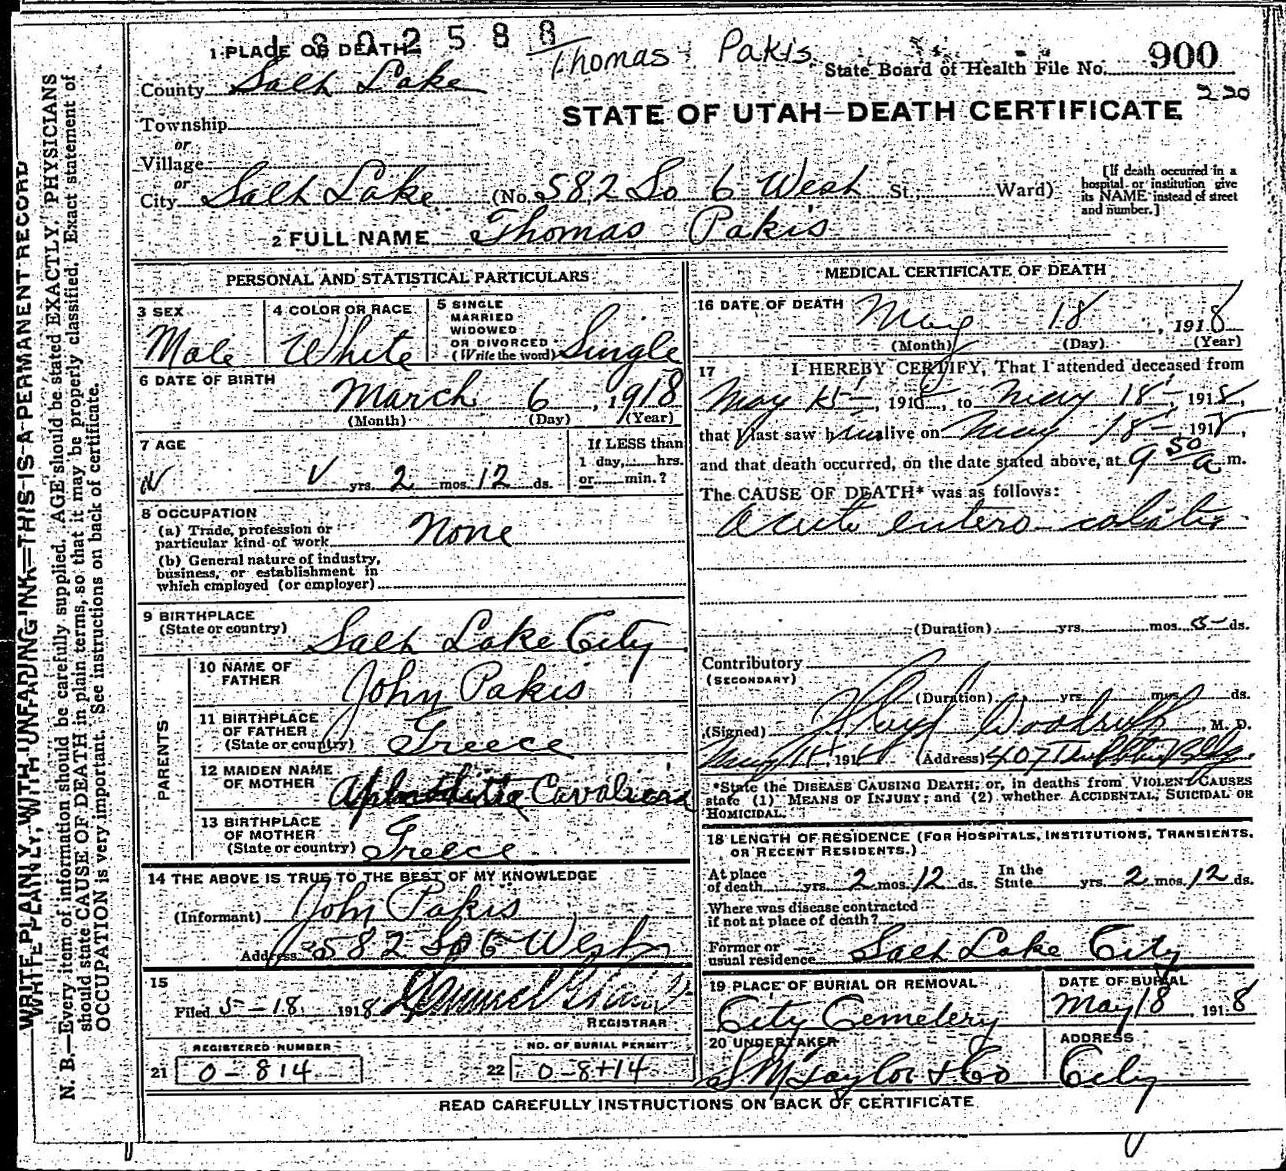 1802588
Thomas Pakis
1 PLACE OF DEATH
State Board of Health File No. 900
220
County Salt Lake
STATE OF UTAH—DEATH CERTIFICATE
Township
or
Village
or
City Salt Lake (No. 582 So 6 West St., Ward)
[If death occurred in a
hospital or institution give
its NAME instead of street
and number.]
2 FULL NAME Thomas Pakis
PERSONAL AND STATISTICAL PARTICULARS
3 SEX Male
4 COLOR OR RACE White
5 SINGLE
MARRIED
WIDOWED
OR DIVORCED
(Write the word) Single
6 DATE OF BIRTH
March 6, 1918
(Month) (Day) (Year)
7 AGE
yrs. 2 mos. 12 ds.
If LESS than
1 day, hrs.
or min.?
8 OCCUPATION
(a) Trade, profession or
particular kind of work None
(b) General nature of industry,
business, or establishment in
which employed (or employer)
9 BIRTHPLACE
(State or country) Salt Lake City
PARENTS
10 NAME OF
FATHER John Pakis
11 BIRTHPLACE
OF FATHER
(State or country) Greece
12 MAIDEN NAME
OF MOTHER Cavaliera
13 BIRTHPLACE
OF MOTHER
(State or country) Greece
14 THE ABOVE IS TRUE TO THE BEST OF MY KNOWLEDGE
(Informant) John Pakis
Address 582 So 6 West
15
Filed 5-18 1918
REGISTRAR
REGISTERED NUMBER
21 0-814
NO. OF BURIAL PERMIT
22 0-814
MEDICAL CERTIFICATE OF DEATH
16 DATE OF DEATH
May 18, 1918
(Month) (Day) (Year)
17 I HEREBY CERTIFY, That I attended deceased from
May 15, 1918, to May 18, 1918,
that I last saw him alive on May 18, 1918,
and that death occurred, on the date stated above, at 9 50 a m.
The CAUSE OF DEATH* was as follows:
Acute entero colitis
(Duration) yrs. mos. 5 ds.
Contributory
(SECONDARY)
(Duration) yrs. mos. ds.
(Signed) Woodruff, M. D.
May 191 (Address) 407
*State the DISEASE CAUSING DEATH; or, in deaths from VIOLENT CAUSES
state (1) MEANS OF INJURY; and (2) whether ACCIDENTAL, SUICIDAL OR
HOMICIDAL.
18 LENGTH OF RESIDENCE (FOR HOSPITALS, INSTITUTIONS, TRANSIENTS,
OR RECENT RESIDENTS.)
At place
of death yrs. 2 mos. 12 ds.
In the
State yrs. 2 mos. 12 ds.
Where was disease contracted
if not at place of death?
Former or
usual residence Salt Lake City
19 PLACE OF BURIAL OR REMOVAL
City Cemetery
DATE OF BURIAL
May 18, 1918
20 UNDERTAKER
S M Taylor & Co
ADDRESS
City
READ CAREFULLY INSTRUCTIONS ON BACK OF CERTIFICATE
WRITE PLAINLY, WITH UNFADING INK—THIS IS A PERMANENT RECORD
N. B.—Every item of information should be carefully supplied. AGE should be stated EXACTLY. PHYSICIANS
should state CAUSE OF DEATH in plain terms, so that it may be properly classified. Exact statement of
OCCUPATION is very important. See instructions on back of certificate.